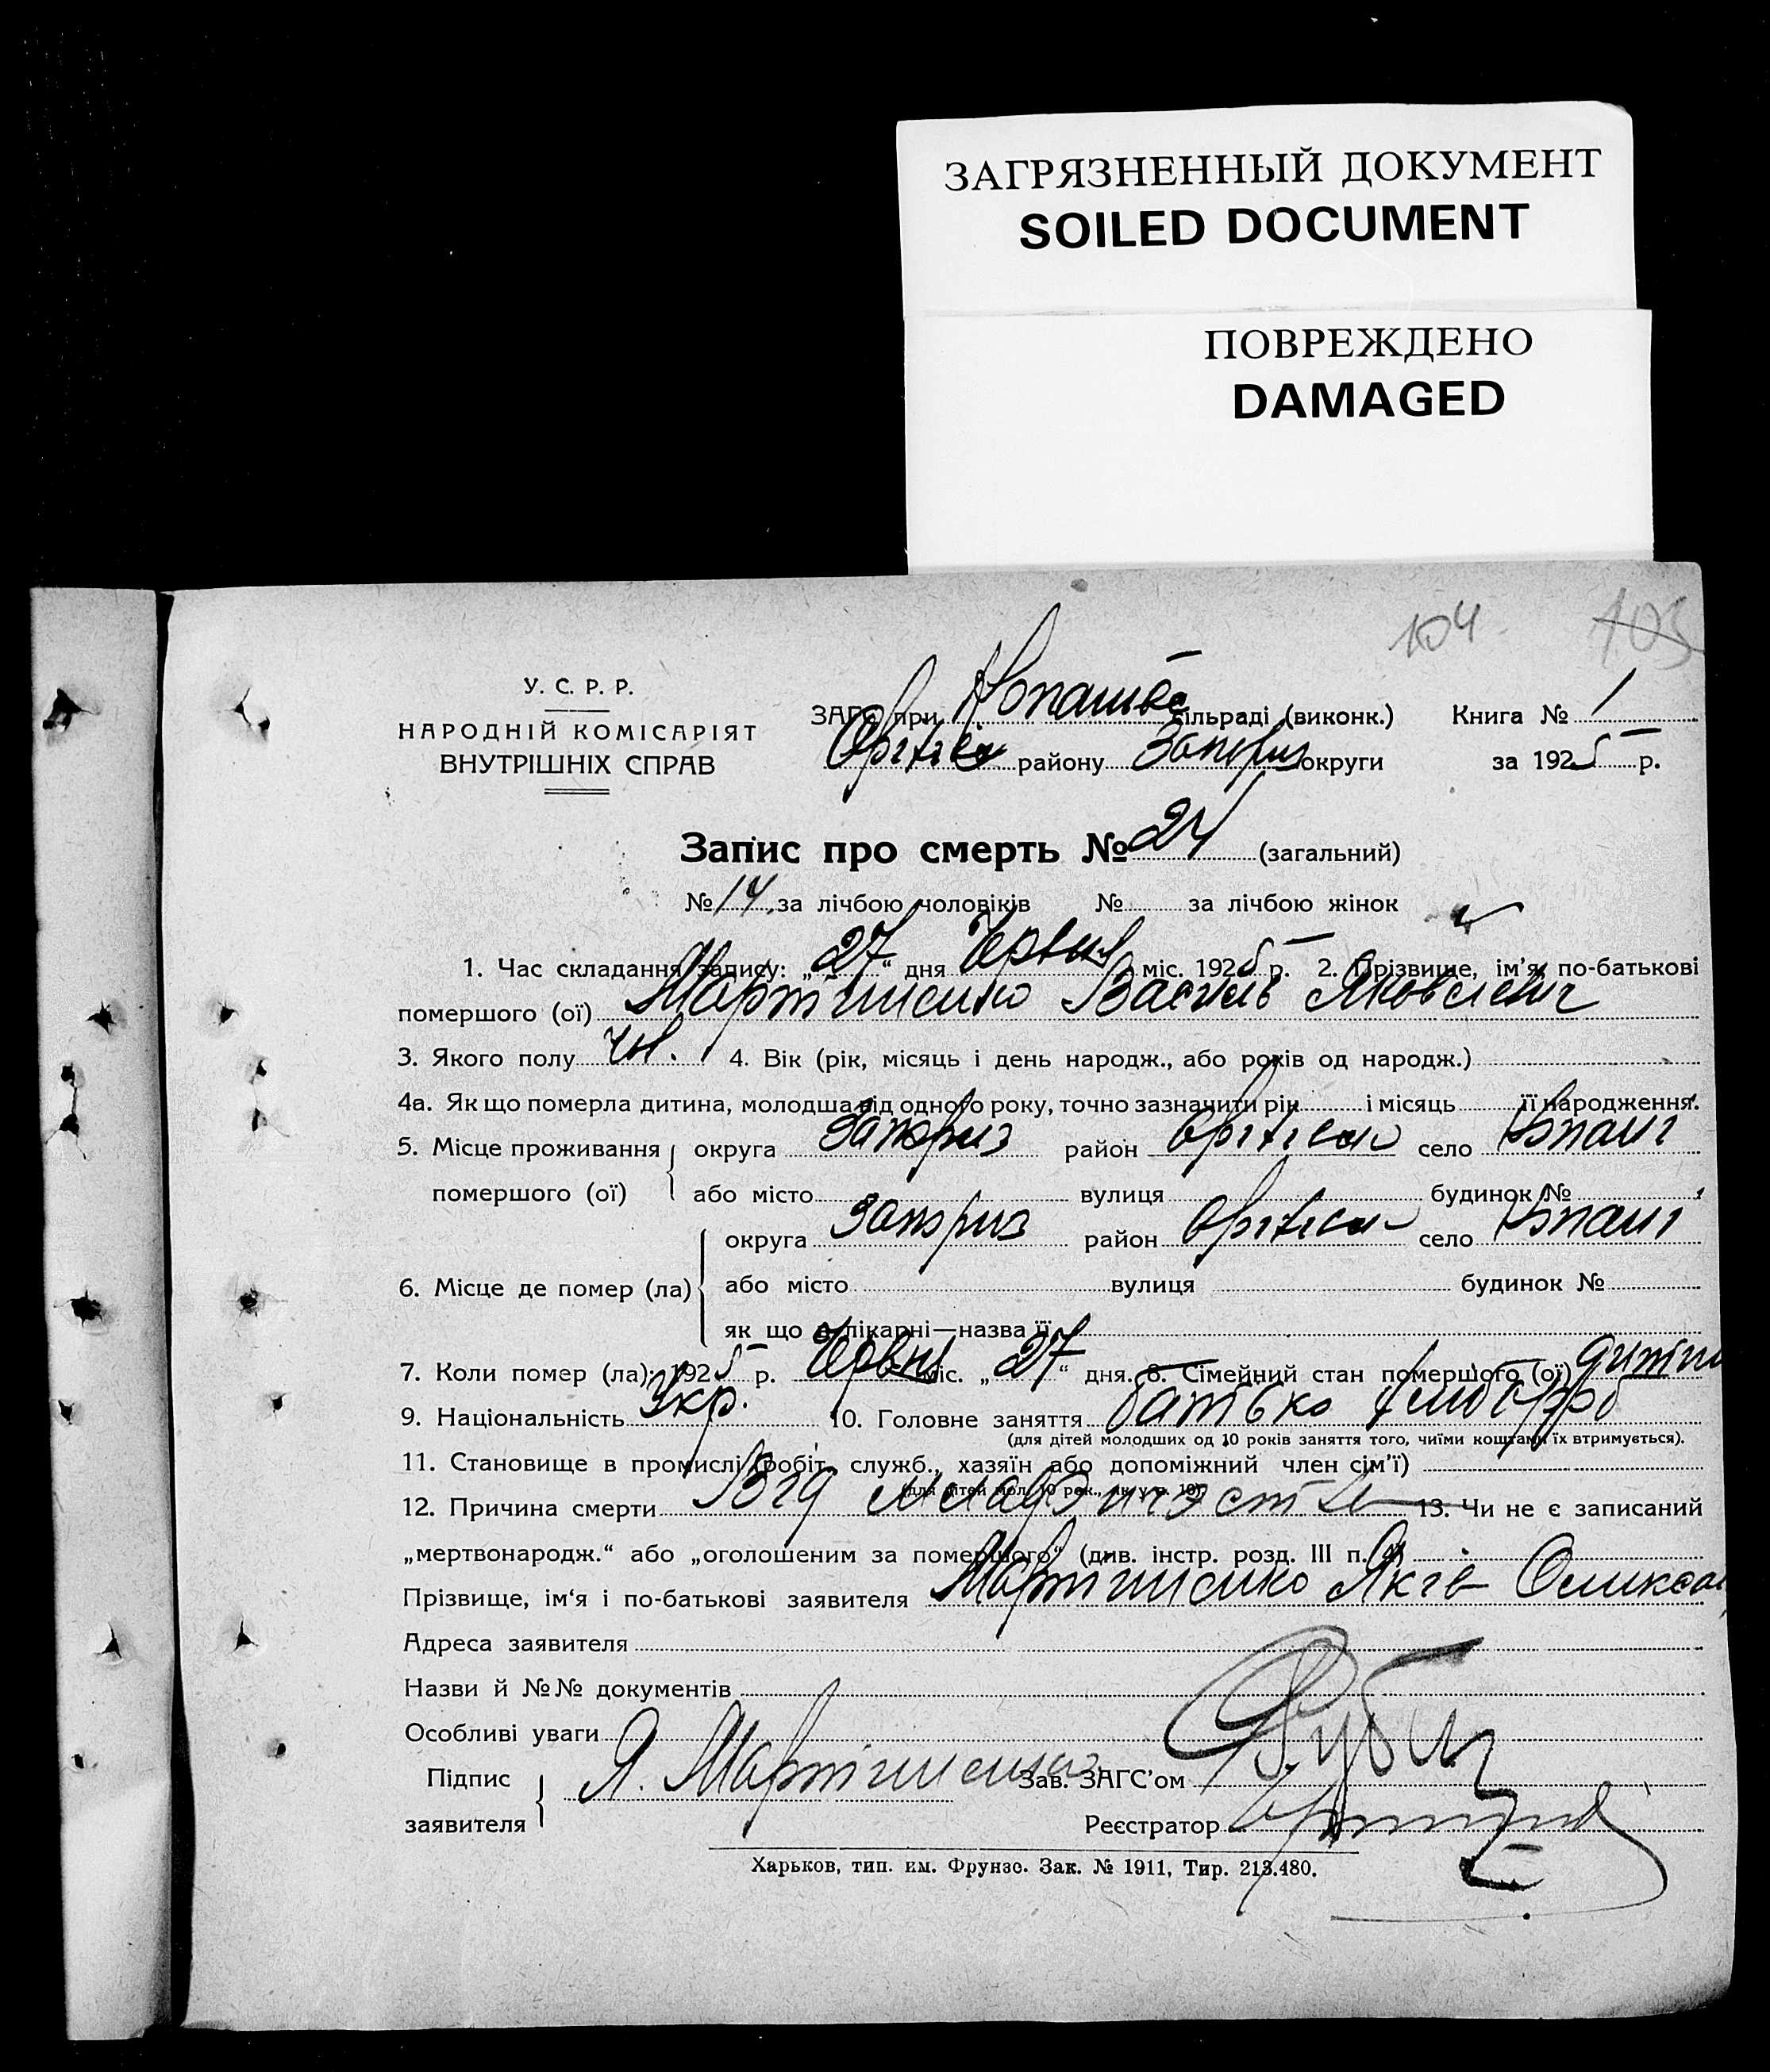 ЗАГРЯЗНЕННЫЙ ДОКУМЕНТ
SOILED DOCUMENT
ПОВРЕЖДЕНО
DAMAGED
104 103
У. С. Р. Р.
НАРОДНІЙ КОМІСАРІЯТ
ВНУТРІШНІХ СПРАВ
ЗАГС при сільраді (виконк.) Книга № 1
району Запоріз округи за 1925 р.
Запис про смерть № 24 (загальний)
№ 14 за лічбою чоловіків № за лічбою жінок
1. Час складання запису: „27“ дня Червня міс. 1925 р. 2. Прізвище, ім'я, по-батькові
помершого (ої) Мартиненко Василь Яковлевич
3. Якого полу чл. 4. Вік (рік, місяць і день народж., або років од народж.)
4а. Як що померла дитина, молодша від одного року, точно зазначити рік і місяць її народження.
5. Місце проживання округа Запоріз район село
помершого (ої) або місто вулиця будинок №
округа Запоріз район село
6. Місце де помер (ла) або місто вулиця будинок №
як що в лікарні—назва її
7. Коли помер (ла): 1925 р. Червня міс. „27“ дня. 8. Сімейний стан помершого (ої)
9. Національність Укр. 10. Головне заняття батько хлібороб
(для дітей молодших од 10 років заняття того, чиїми коштами їх втримується).
11. Становище в промислі (робіт., служб., хазяїн або допоміжний член сім'ї)
(для дітей мол. 10 рок., як у п. 10)
12. Причина смерти Від 13. Чи не є записаний
„мертвонародж.“ або „оголошеним за помершого“ (див. інстр. розд. III п. 4)
Прізвище, ім'я і по-батькові заявителя Мартиненко Яків
Адреса заявителя
Назви й №№ документів
Особливі уваги
Підпис Я. Мартиненко Зав. ЗАГС'ом
заявителя Реєстратор
Харьков, тип. им. Фрунзе. Зак. № 1911, Тир. 213.480.